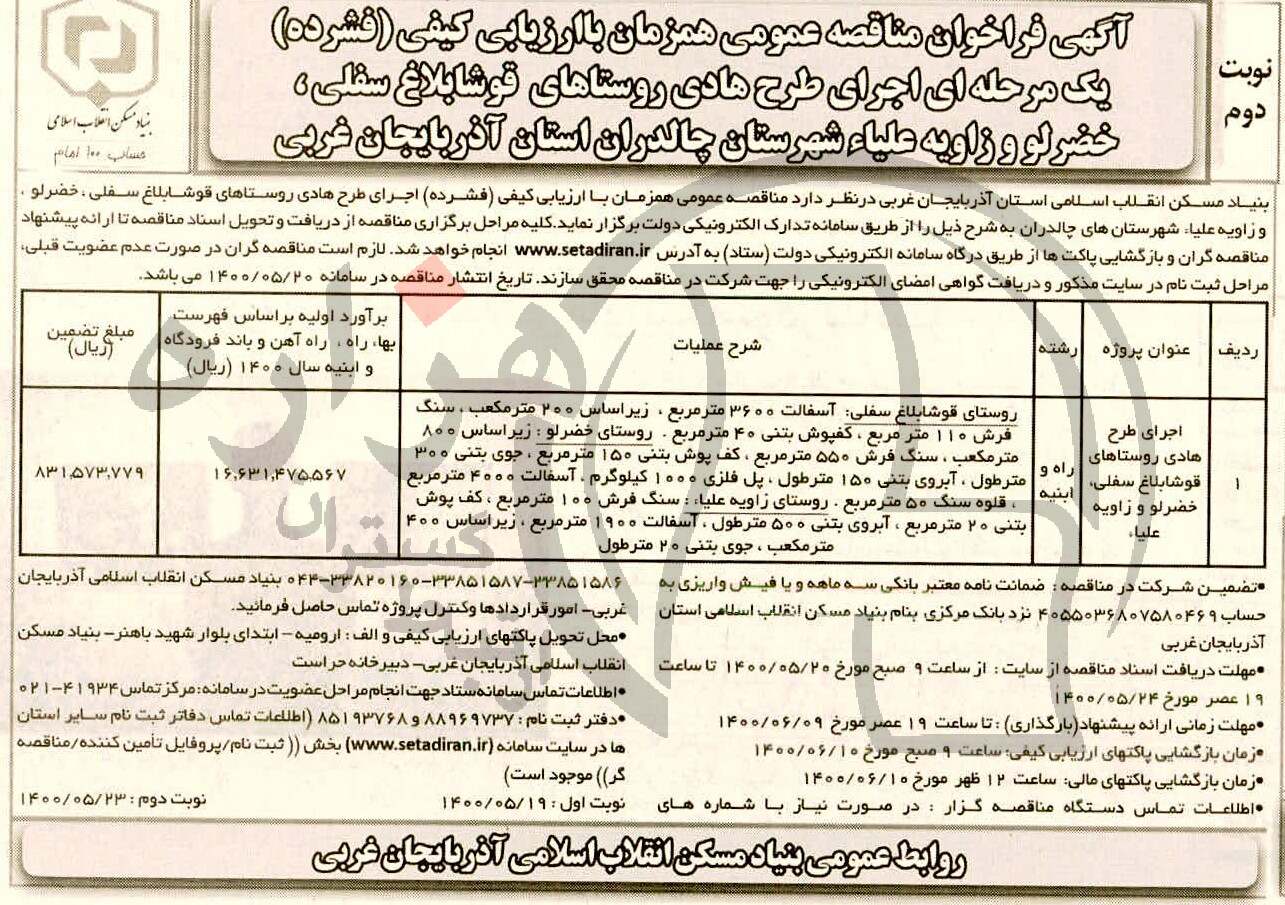 نوبت
دوم
آگهی فراخوان مناقصه عمومی همزمان باارزیابی کیفی (فشرده)
یک مرحله ای اجرای طرح هادی روستاهای قوشابلاغ سفلی ،
خضرلو و زاویه علیاء شهرستان چالدران استان آذربایجان غربی
بنیاد مسکن انقلاب اسلامی
حساب ۱۰۰ امام
بنیاد مسکن انقلاب اسلامی استان آذربایجان غربی درنظر دارد مناقصه عمومی همزمان با ارزیابی کیفی (فشرده) اجرای طرح هادی روستاهای قوشابلاغ سفلی ، خضرلو ،
و زاویه علیاء شهرستان های چالدران به شرح ذیل را از طریق سامانه تدارک الکترونیکی دولت برگزار نماید.کلیه مراحل برگزاری مناقصه از دریافت و تحویل اسناد مناقصه تا ارائه پیشنهاد
مناقصه گران و بازگشایی پاکت ها از طریق درگاه سامانه الکترونیکی دولت (ستاد) به آدرس www.setadiran.ir انجام خواهد شد. لازم است مناقصه گران در صورت عدم عضویت قبلی،
مراحل ثبت نام در سایت مذکور و دریافت گواهی امضای الکترونیکی را جهت شرکت در مناقصه محقق سازند. تاریخ انتشار مناقصه در سامانه ۱۴۰۰/۰۵/۲۰ می باشد.
ردیف
عنوان پروژه
رشته
شرح عملیات
برآورد اولیه براساس فهرست
بها، راه ، راه آهن و باند فرودگاه
و ابنیه سال ۱۴۰۰ (ریال)
مبلغ تضمین
(ریال)
۱
اجرای طرح
هادی روستاهای
قوشابلاغ سفلی،
خضرلو و زاویه
علیاء
راه و
ابنیه
روستای قوشابلاغ سفلی: آسفالت ۳۶۰۰ مترمربع ، زیراساس ۲۰۰ مترمکعب ، سنگ
فرش ۱۱۰ متر مربع ، کفپوش بتنی ۴۰ مترمربع . روستای خضرلو : زیراساس ۸۰۰
مترمکعب ، سنگ فرش ۵۵۰ مترمربع ، کف پوش بتنی ۱۵۰ مترمربع ، جوی بتنی ۳۰۰
مترطول ، آبروی بتنی ۱۵۰ مترطول ، پل فلزی ۱۰۰۰ کیلوگرم ، آسفالت ۴۰۰۰ مترمربع
، قلوه سنگ ۵۰ مترمربع . روستای زاویه علیاء : سنگ فرش ۱۰۰ مترمربع ، کف پوش
بتنی ۲۰ مترمربع ، آبروی بتنی ۵۰۰ مترطول ، آسفالت ۱۹۰۰ مترمربع ، زیراساس ۴۰۰
مترمکعب ، جوی بتنی ۲۰ مترطول
۱۶,۶۳۱,۴۷۵,۵۶۷
۸۳۱,۵۷۳,۷۷۹
•تضمین شرکت در مناقصه : ضمانت نامه معتبر بانکی سه ماهه و یا فیش واریزی به
حساب ۴۰۵۵۰۳۶۸۰۷۵۸۰۴۶۹ نزد بانک مرکزی بنام بنیاد مسکن انقلاب اسلامی استان
آذربایجان غربی
•مهلت دریافت اسناد مناقصه از سایت : از ساعت ۹ صبح مورخ ۱۴۰۰/۰۵/۲۰ تا ساعت
۱۹ عصر مورخ ۱۴۰۰/۰۵/۲۴
•مهلت زمانی ارائه پیشنهاد(بارگذاری) : تا ساعت ۱۹ عصر مورخ ۱۴۰۰/۰۶/۰۹
•زمان بازگشایی پاکتهای ارزیابی کیفی: ساعت ۹ صبح مورخ ۱۴۰۰/۰۶/۱۰
•زمان بازگشایی پاکتهای مالی: ساعت ۱۲ ظهر مورخ ۱۴۰۰/۰۶/۱۰
•اطلاعات تماس دستگاه مناقصه گزار : در صورت نیاز با شماره های
۳۳۸۵۱۵۸۶-۳۳۸۵۱۵۸۷-۳۳۸۲۰۱۶۰-۰۴۴ بنیاد مسکن انقلاب اسلامی آذربایجان
غربی- امور قراردادها وکنترل پروژه تماس حاصل فرمائید.
•محل تحویل پاکتهای ارزیابی کیفی و الف : ارومیه - ابتدای بلوار شهید باهنر- بنیاد مسکن
انقلاب اسلامی آذربایجان غربی- دبیرخانه حراست
•اطلاعات تماس سامانه ستاد جهت انجام مراحل عضویت در سامانه: مرکز تماس ۴۱۹۳۴-۰۲۱
•دفتر ثبت نام : ۸۸۹۶۹۷۳۷ و ۸۵۱۹۳۷۶۸ (اطلاعات تماس دفاتر ثبت نام سایر استان
ها در سایت سامانه (www.setadiran.ir) بخش (( ثبت نام/پروفایل تأمین کننده/مناقصه
گر)) موجود است)
نوبت اول : ۱۴۰۰/۰۵/۱۹ نوبت دوم : ۱۴۰۰/۰۵/۲۳
روابط عمومی بنیاد مسکن انقلاب اسلامی آذربایجان غربی
هزاره
گستران